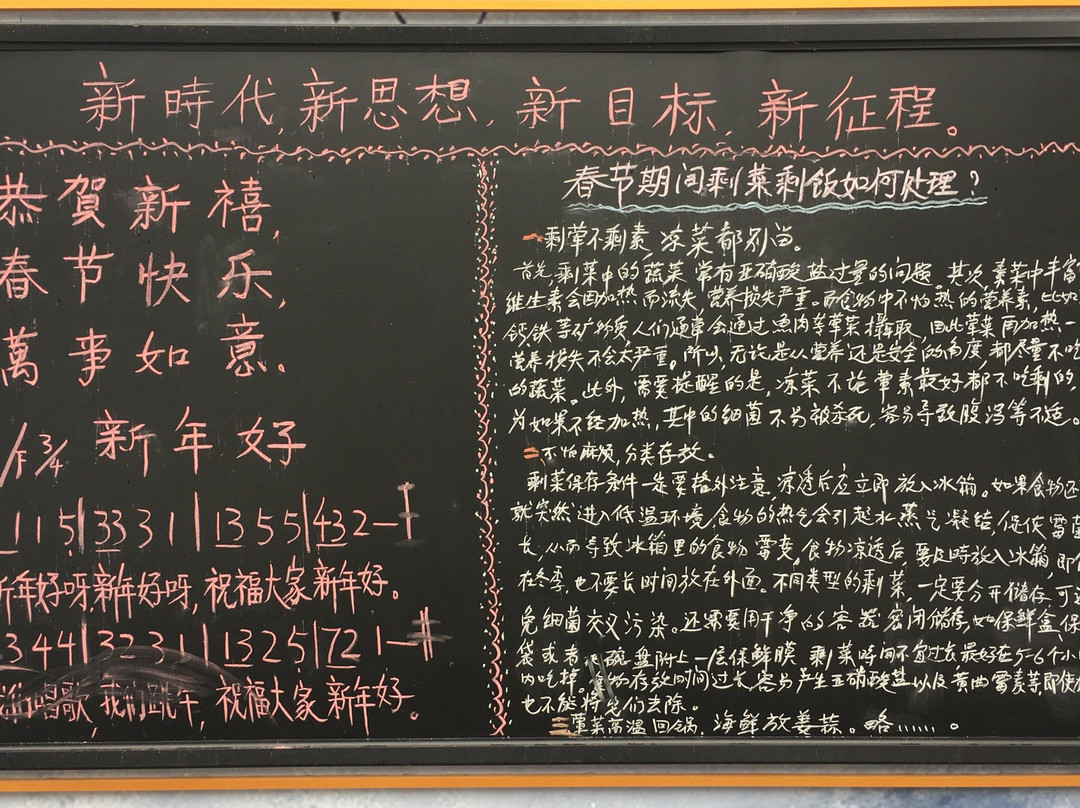 新時代,新思想,新目标,新征程。
恭賀新禧,
春节快乐,
萬事如意。
新年好
3/4
115|3331|1355|432—
新年好呀,新年好呀,祝福大家新年好。
3344|3231|1325|721—
我们唱歌,我们跳午,祝福大家新年好。
春节期间剩菜剩饭如何处理?
一剩荤不剩素,凉菜都别当。
首先,剩菜中的蔬菜常有亚硝酸盐过量的问题。其次,素菜中丰富
维生素会因加热而流失,营养损失严重。而食物中不怕热的营养素,比如
钙铁等矿物质,人们通常会通过鱼肉等荤菜摄取,因此荤菜再加热一
营养损失不会太严重。所以,无论是从营养还是安全的角度,都尽量不吃
的蔬菜。此外,需要提醒的是,凉菜不论荤素最好都不吃剩的,
为如果不经加热,其中的细菌不易被杀死,容易导致腹泻等不适。
二不怕麻烦,分类存放。
剩菜保存条件一定要格外注意,凉透后应立即放入冰箱。如果食物还
就突然进入低温环境,食物的热气会引起水蒸气凝结,促使霉菌
长,从而导致冰箱里的食物霉变,食物凉透后,要及时放入冰箱,即使
在冬季,也不要长时间放在外面。不同类型的剩菜,一定要分开储存,可避
免细菌交叉污染。还需要用干净的容器密闭储存,如保鲜盒、保
袋或者 碗盘附上一层保鲜膜 剩菜时间不宜过长最好在5-6个小
内吃掉。 物存放时间过长,容易产生亚硝酸盐以及黄曲霉素等即使加
也不能将它们去除。
三荤菜高温回锅,海鲜放姜蒜。略……。